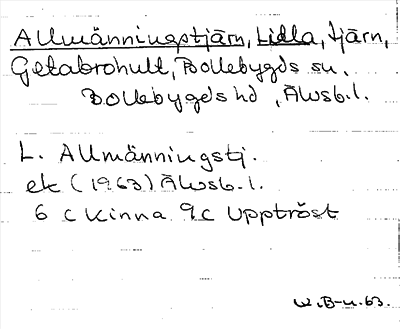 Allmänningstjärn, Lilla, tjärn,
Getabrohult, Bollebygds sn,
Bollebygds hd, Älvsb.l.
L. Allmänningstj.
ek (1963) Älvsb.l.
6 c Kinna 9c Upptröst
W.B-n.63.